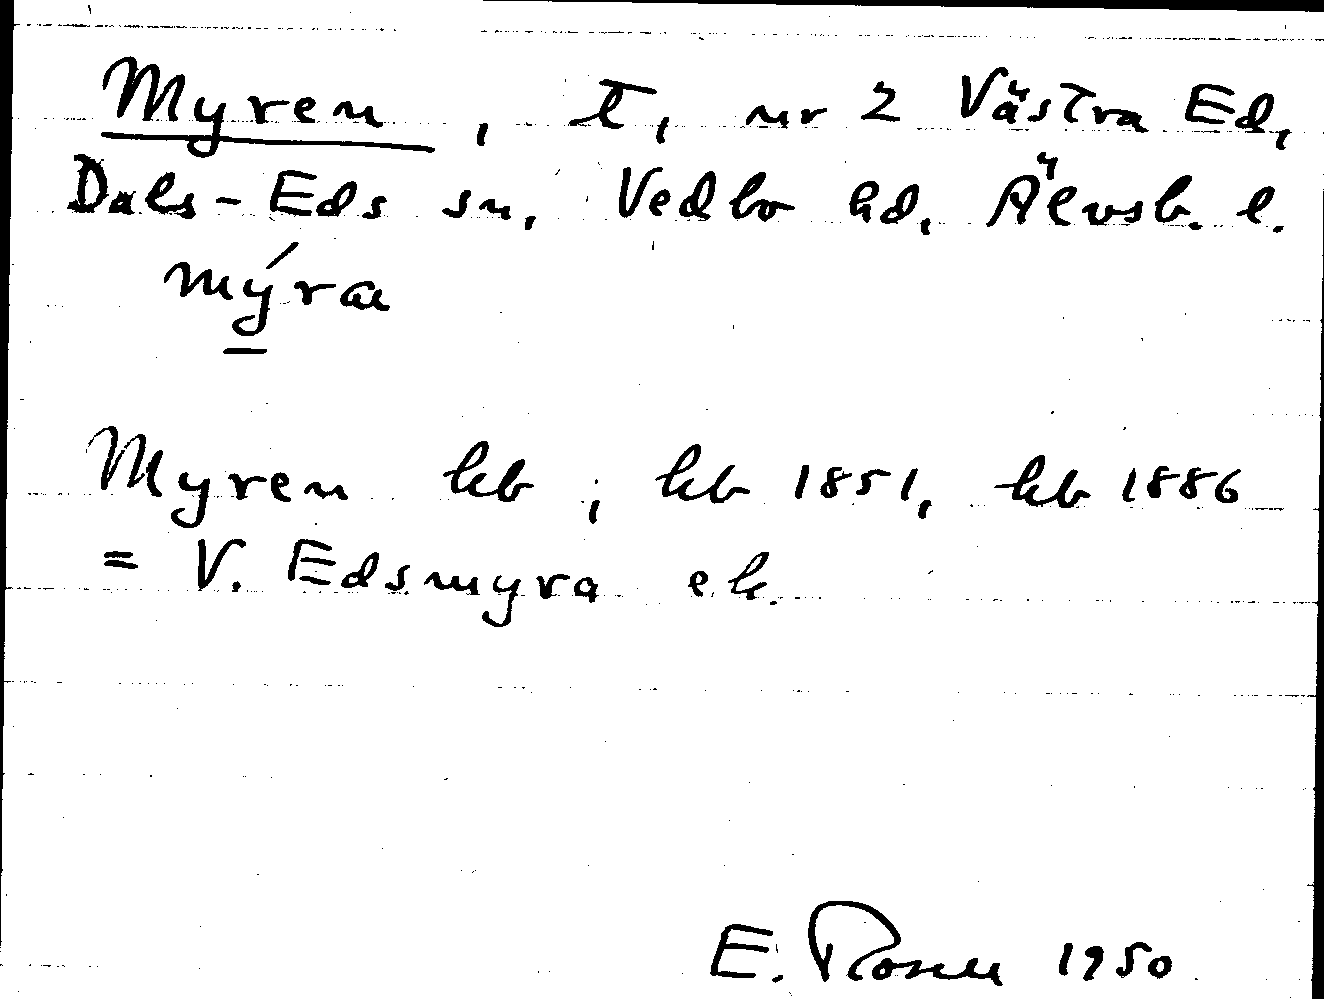 Myren, t, nr 2 Västra Ed,
Dals-Eds sn, Vedbo hd, Älvsb. l.
mýra
Myren kb; kb 1851, kb 1886
= V. Edsmyra ek.
E. Rosell 1950